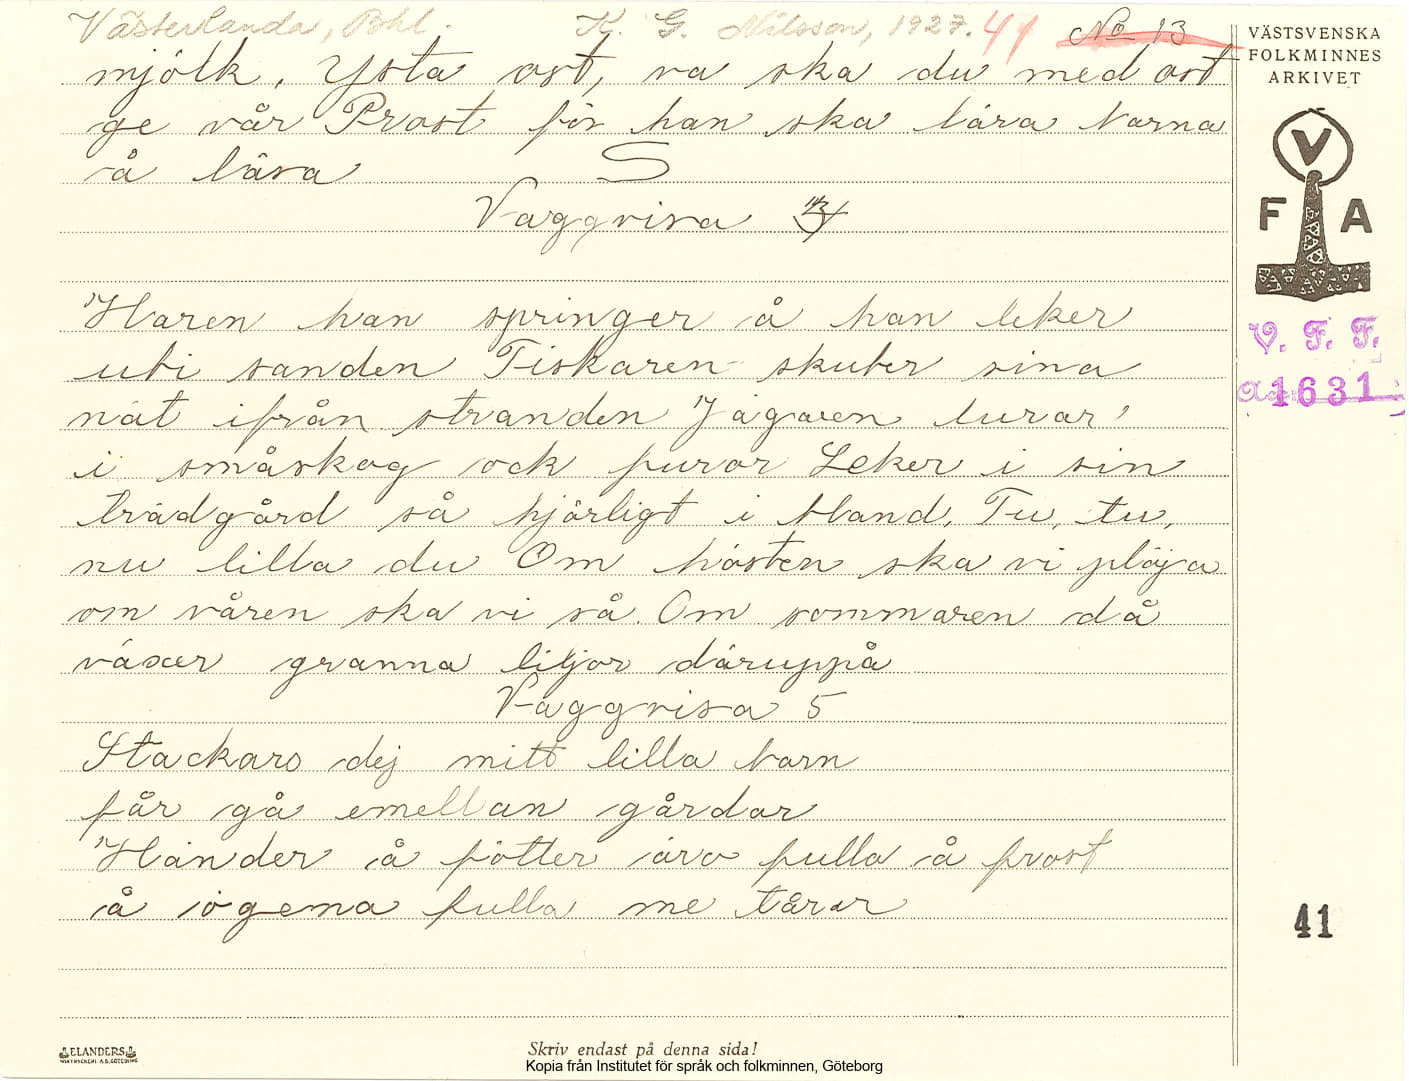 Västerlanda, Bohl. K. G. Nilsson, 1927. 41 No 13
mjölk. Ysta ost, va ska du med ost
ge vår Prost för han ska lära barna
å läsa S
Vaggvisa
Haren han springer å han leker
uti sanden Fiskaren skuter sina
nät ifrån stranden Jägaren lurar
i småskog ock furor Leker i sin
trädgård så hjärligt i bland, Tu, tu,
nu lilla du Om hösten ska vi plöja
om våren ska vi så. Om sommaren då
växer granna liljor däruppå
Vaggvisa 5
Stackars dej mitt lilla barn
får gå emellan gårdar
Händer å fötter äro fulla å frost
å ögema fulla me tårar
VÄSTSVENSKA
FOLKMINNES
ARKIVET
V
F A
V. F. F.
1631
41
ELANDERS
Skriv endast på denna sida!
Kopia från Institutet för språk och folkminnen, Göteborg